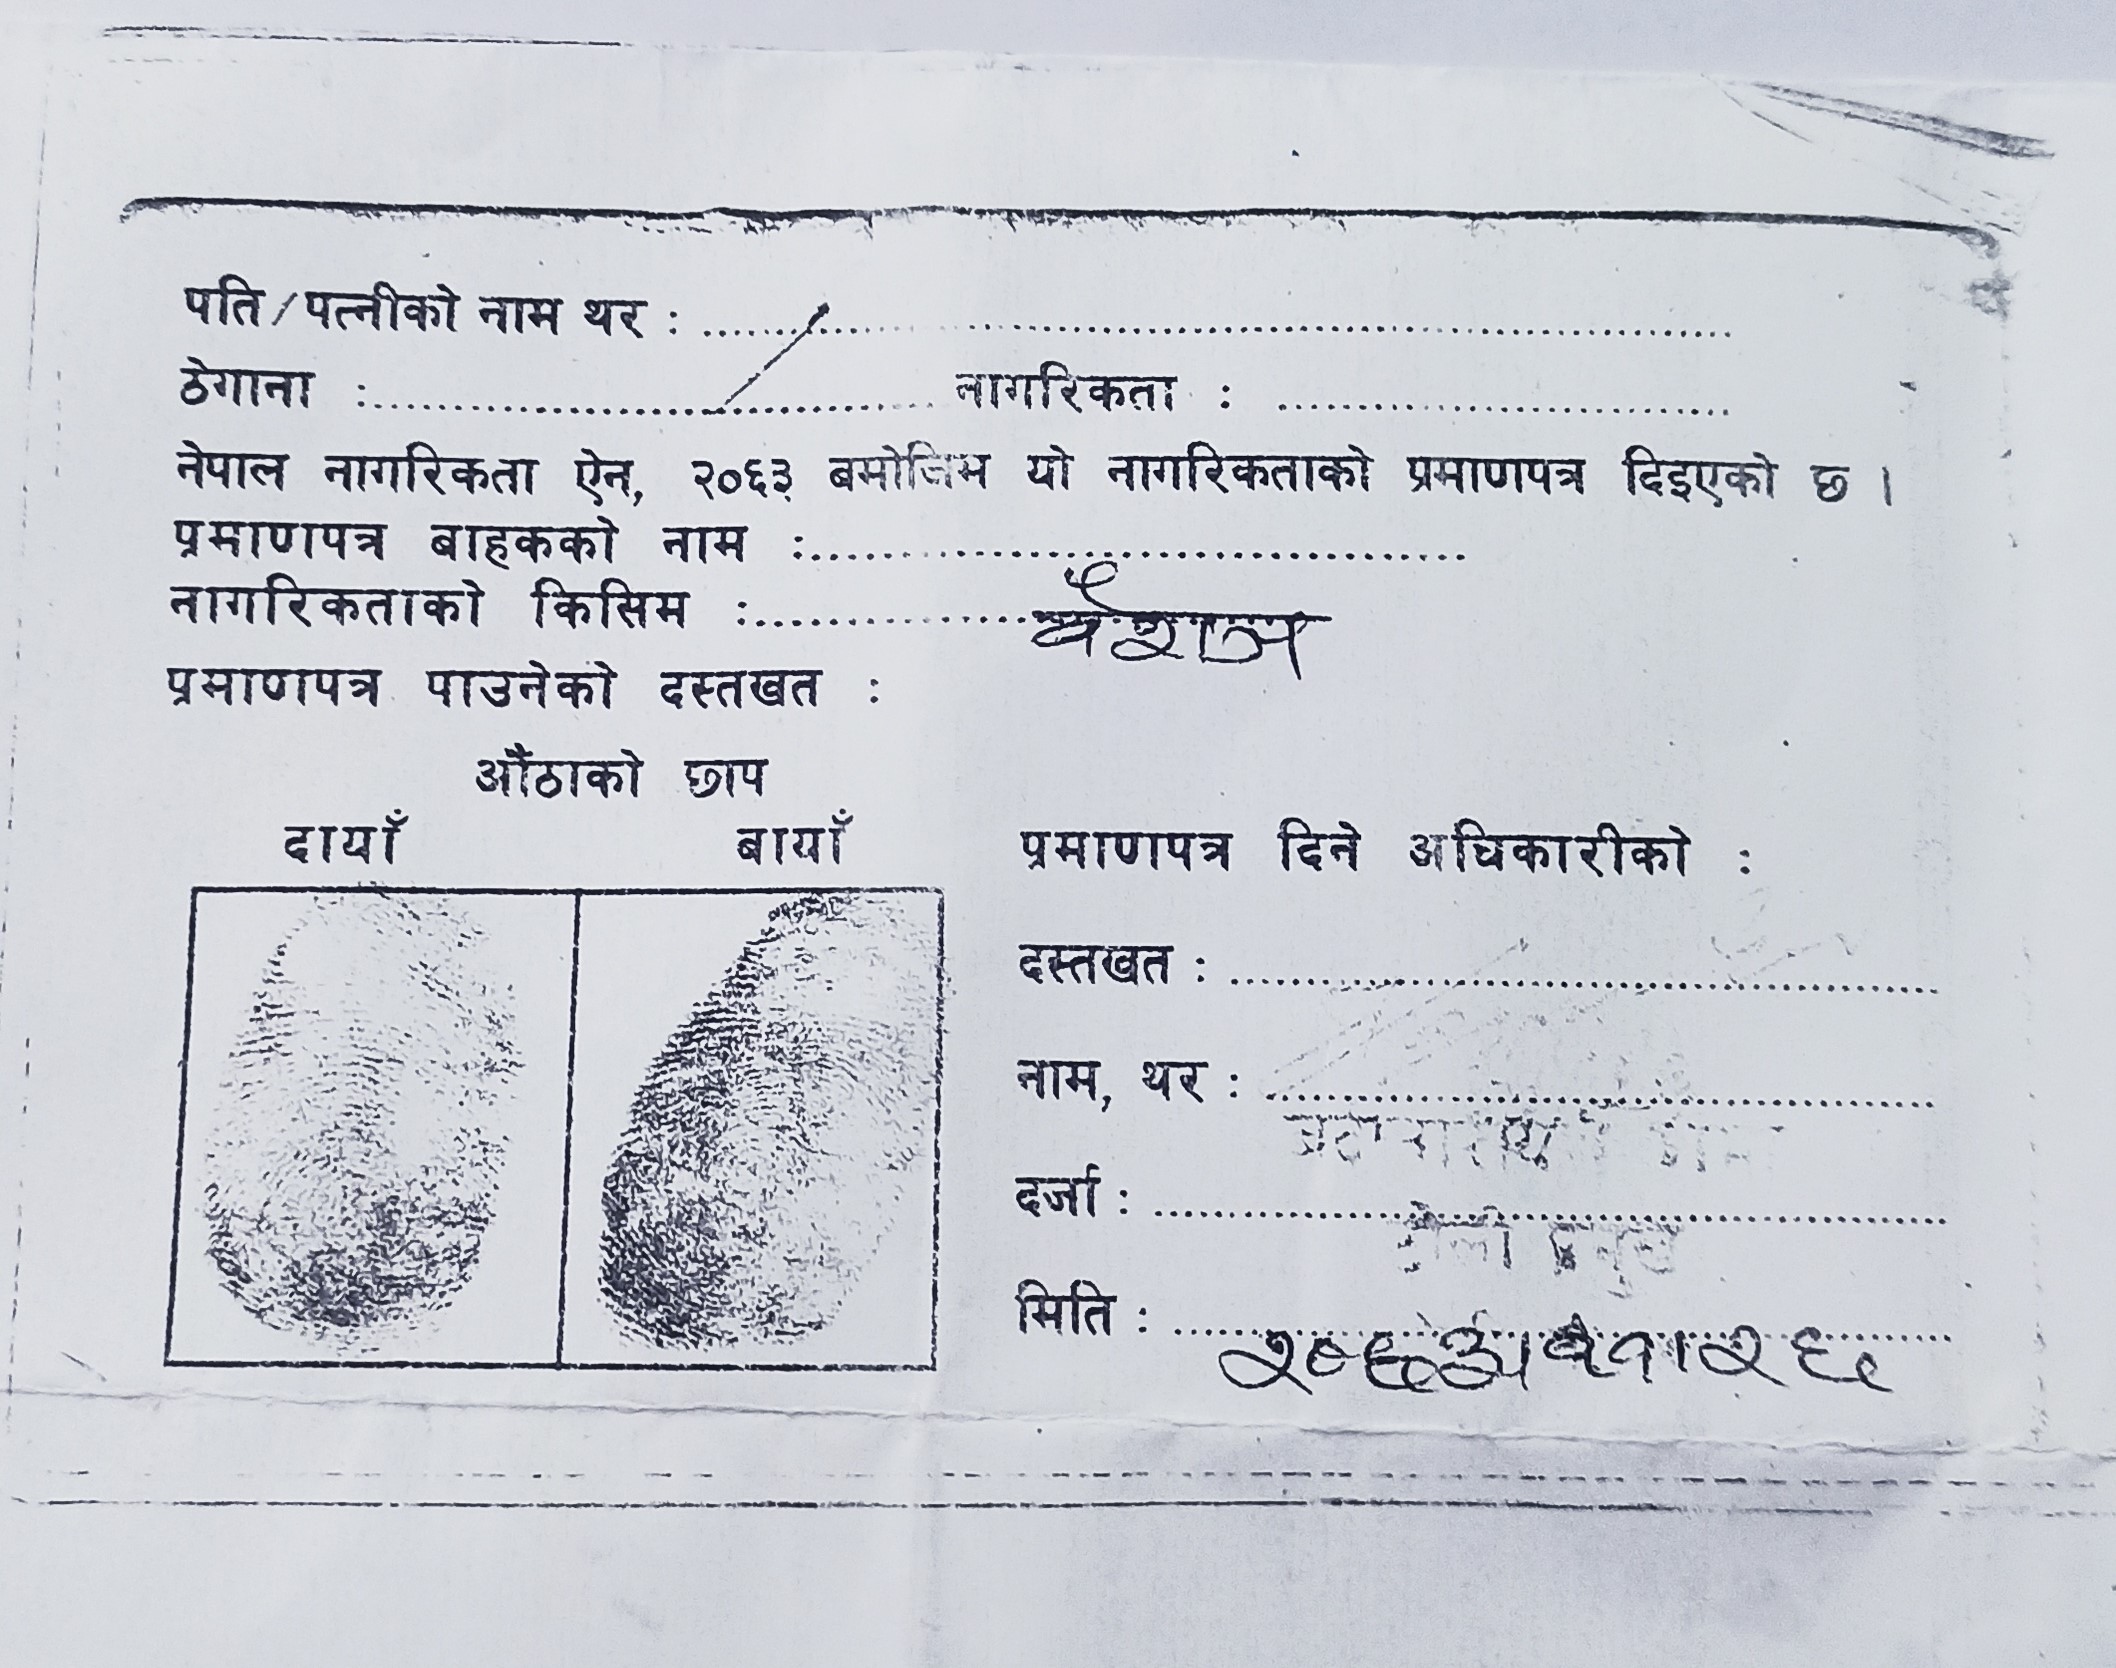 पति/पत्नीको नाम थर :
ठेगाना : नागरिकता :
नेपाल नागरिकता ऐन, २०६३ बमोजिम यो नागरिकताको प्रमाणपत्र दिइएको छ ।
प्रमाणपत्र बाहकको नाम :
नागरिकताको किसिम : वंशज
प्रमाणपत्र पाउनेको दस्तखत :
औंठाको छाप
दायाँ बायाँ
प्रमाणपत्र दिने अधिकारीको :
दस्तखत :
नाम, थर :
दर्जा :
मिति :